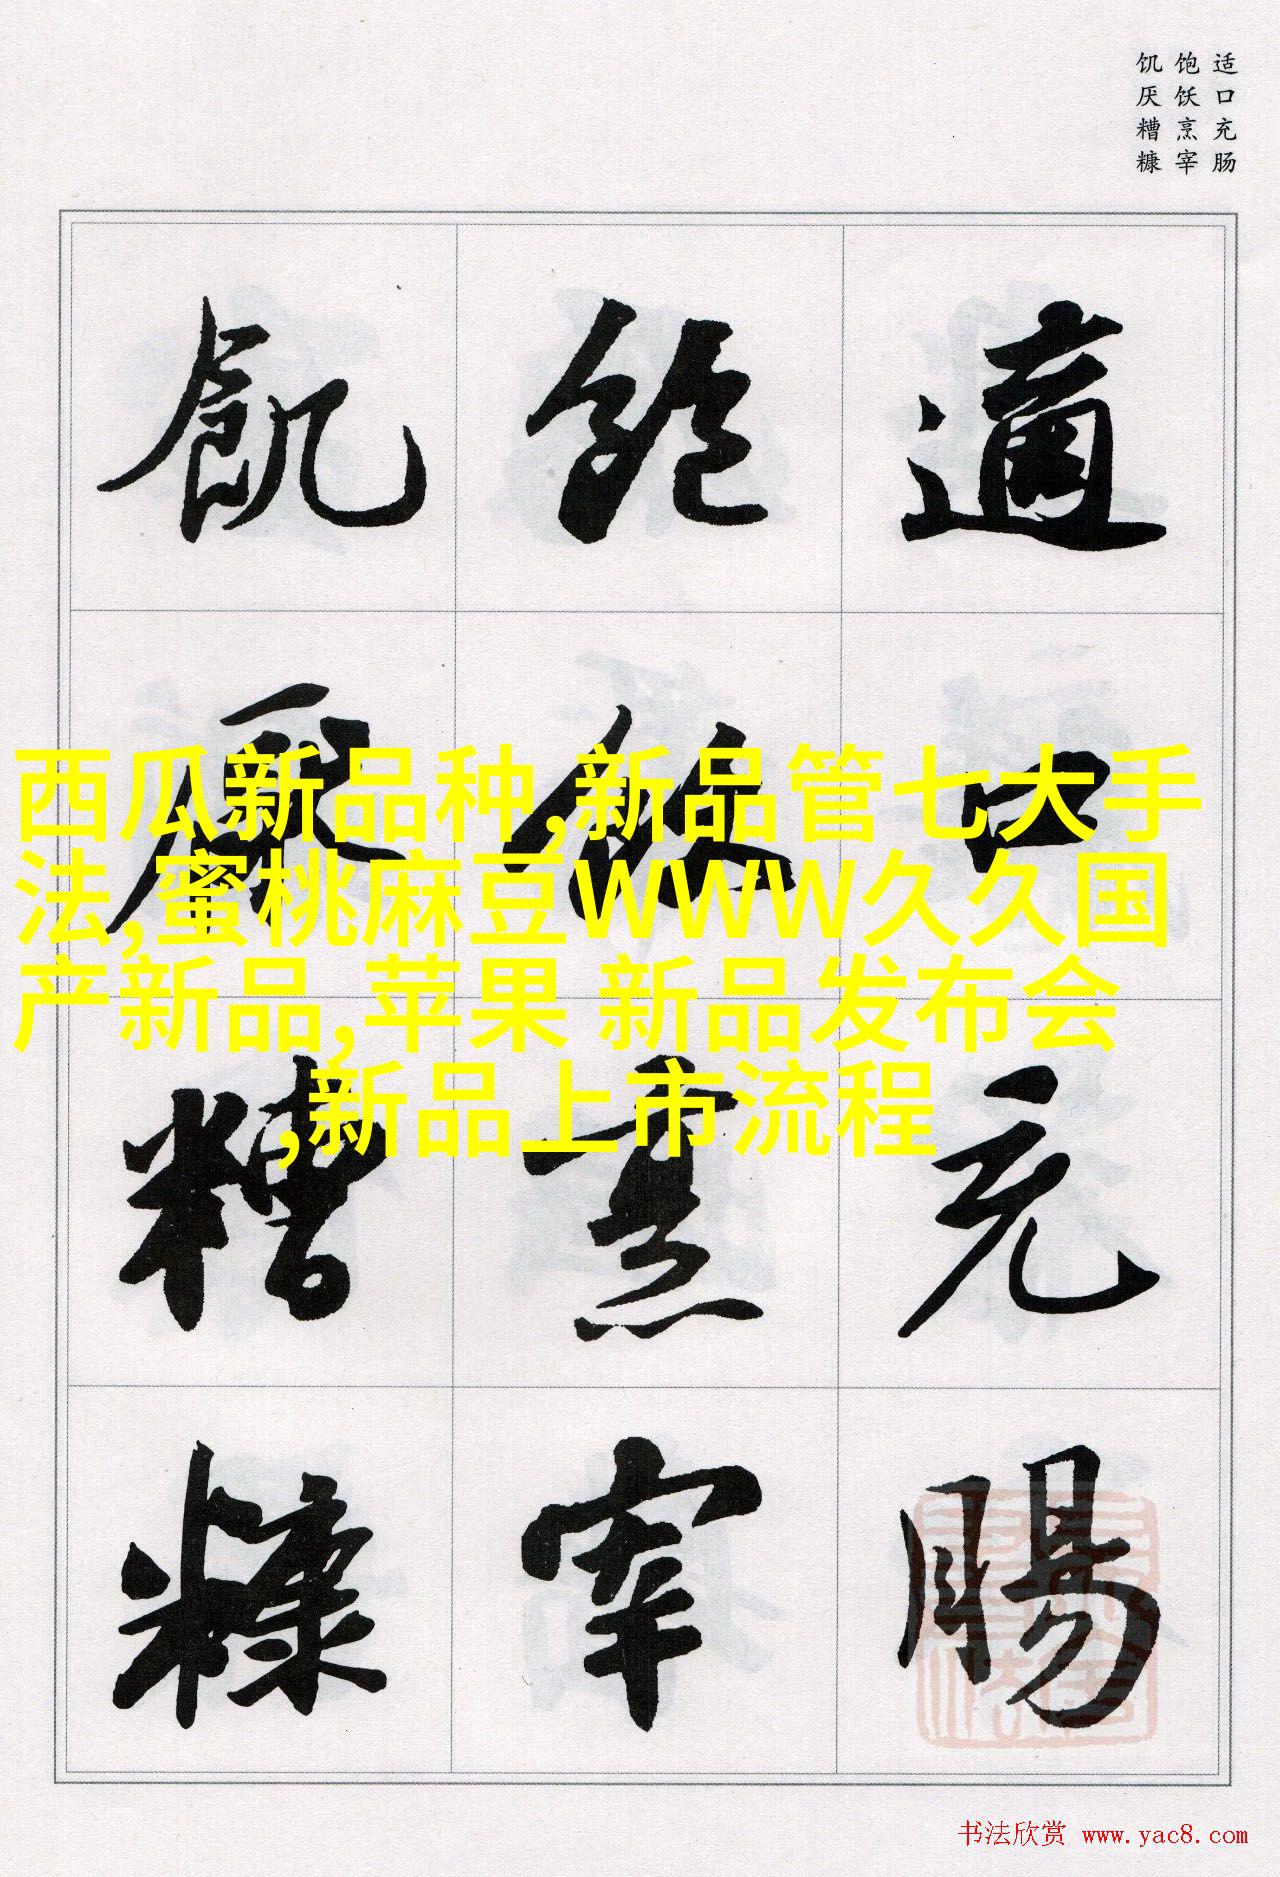 适口充肠
饱饫烹宰
饥厌糟糠
適口充腸
飽飫烹宰
飢厭糟糠
西瓜新品种,新品管七大手
法,蜜桃麻豆WWW久久国
产新品,苹果 新品发布会
,新品上市流程
书法欣赏 www.yac8.com